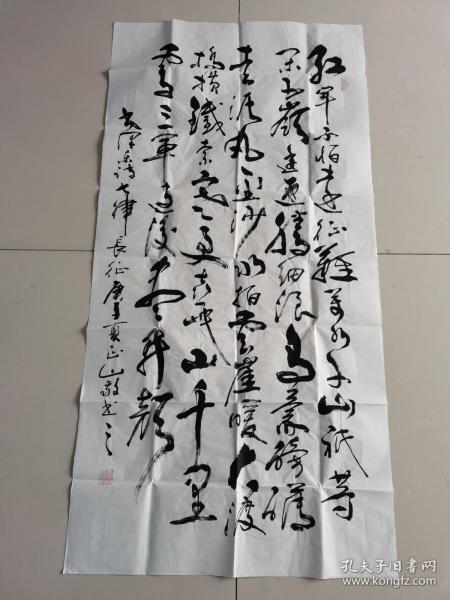 红軍不怕远征難萬水千山祇等
闲五嶺逶迤腾细浪乌蒙磅礴
走泥丸金沙水拍雲崖暖大渡
桥横鐵索寒更喜岷山千里
雪三軍过后尽开颜
毛泽东诗七律長征庚寅夏正山敬书之
孔夫子旧书网
www.kongfz.com